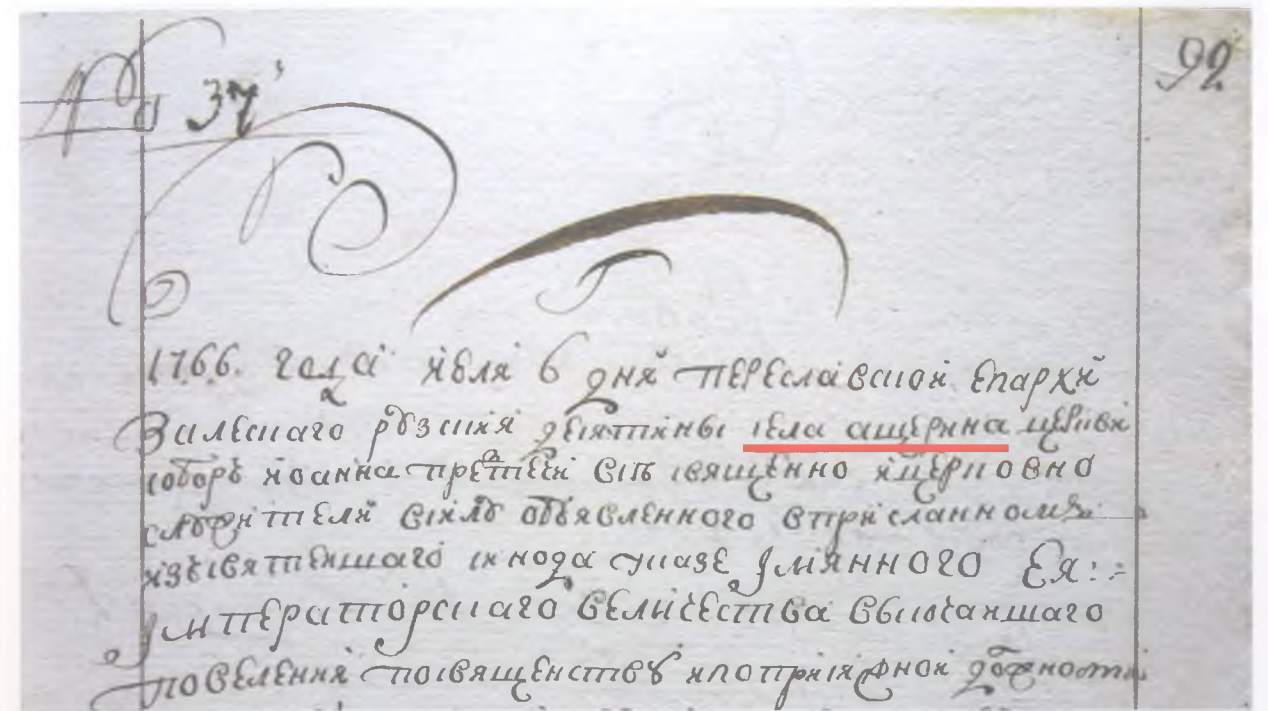 № 37
92
1766. года июля 6 дня переславской епархии
Залескаго рузския десятины села ащерина церкви
собор иоанна претечи вси священно ицерковно
служители всилу объявленного вприсланном
изсвятейшаго синода указе Імянного Ея:
Імператорскаго величества высочаншаго
повеления посвященству ипоприсяжной должности